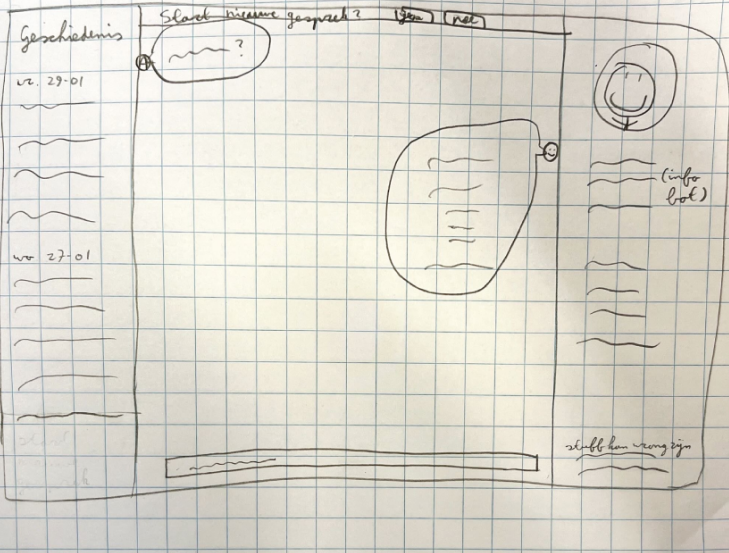 Geschiedenis
vr. 29-01
wo 27-01
Start nieuwe gesprek?
nee
?
A
?
(info
bot)
stuff kan wrong zijn